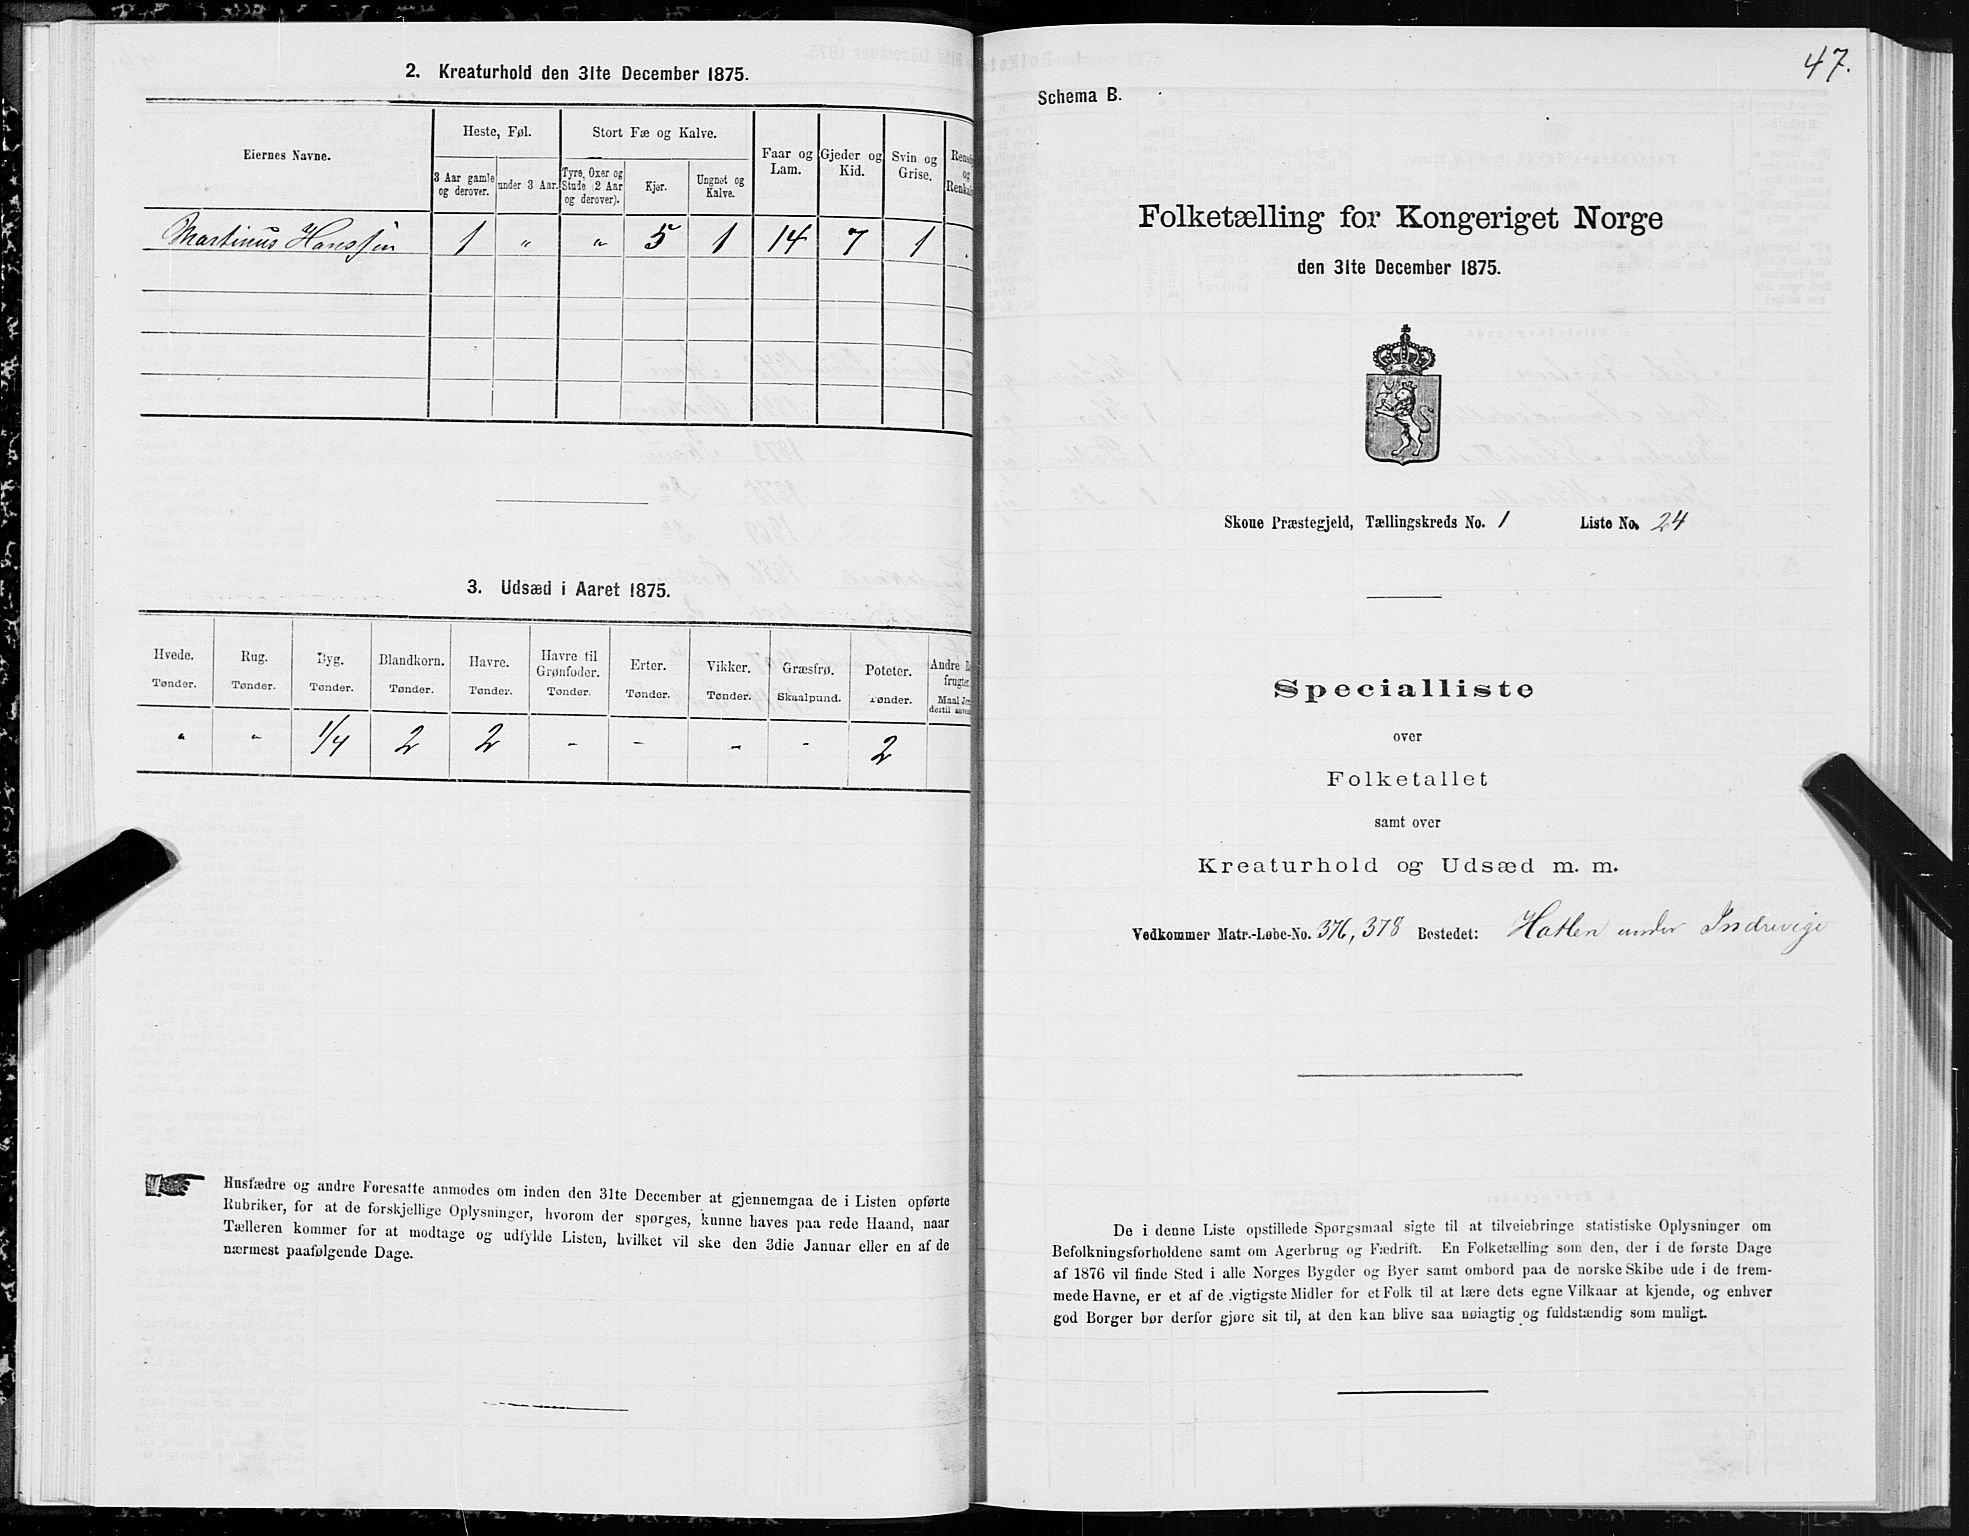 2. Kreaturhold den 31te December 1875.
Eiernes Navne.
Heste, Føl.
Stort Fæ og Kalve.
Faar og Lam.
Gjeder og Kid.
Svin og Grise.
og
3 Aar gamle og derover.
under 3 Aar.
Tyre, Oxer og Stude (2 Aar og derover).
Kjør.
Ungnøt og Kalve.
Martinus Hanssen 1 " " 5 1 14 7 1 .
3. Udsæd i Aaret 1875.
Hvede. Rug. Byg. Blandkorn. Havre. Havre til Grønfoder. Erter. Vikker. Græsfrø. Poteter. Andre
Tønder. Tønder. Tønder. Tønder. Tønder. Tønder. Tønder. Tønder. Skaalpund. Tønder. Maal
" " 1/4 2 2 - - - - 2
Husfædre og andre Foresatte anmodes om inden den 31te December at gjennemgaa de i Listen opførte
Rubriker, for at de forskjellige Oplysninger, hvorom der spørges, kunne haves paa rede Haand, naar
Tælleren kommer for at modtage og udfylde Listen, hvilket vil ske den 3die Januar eller en af de
nærmest paafølgende Dage.
47.
Schema B.
Folketælling for Kongeriget Norge
den 31te December 1875.
Skoue Præstegjeld, Tællingskreds No. 1 Liste No. 24
Specialliste
over
Folketallet
samt over
Kreaturhold og Udsæd m. m.
Vedkommer Matr.-Løbe-No. 376, 378 Bostedet: Hatlen under Indrevige
De i denne Liste opstillede Spørgsmaal sigte til at tilveiebringe statistiske Oplysninger om
Befolkningsforholdene samt om Agerbrug og Fædrift. En Folketælling som den, der i de første Dage
af 1876 vil finde Sted i alle Norges Bygder og Byer samt ombord paa de norske Skibe ude i de frem-
mede Havne, er et af de vigtigste Midler for et Folk til at lære dets egne Vilkaar at kjende, og enhver
god Borger bør derfor gjøre sit til, at den kan blive saa nøiagtig og fuldstændig som muligt.